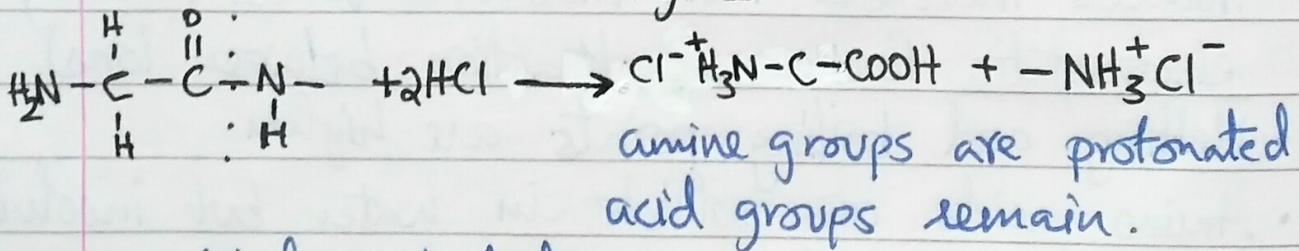 H O
H₂N-C-C-N- +2HCl ⟶ Cl⁻⁺H₃N-C-COOH + -NH₃⁺Cl⁻
H H
amine groups are protonated
acid groups remain.